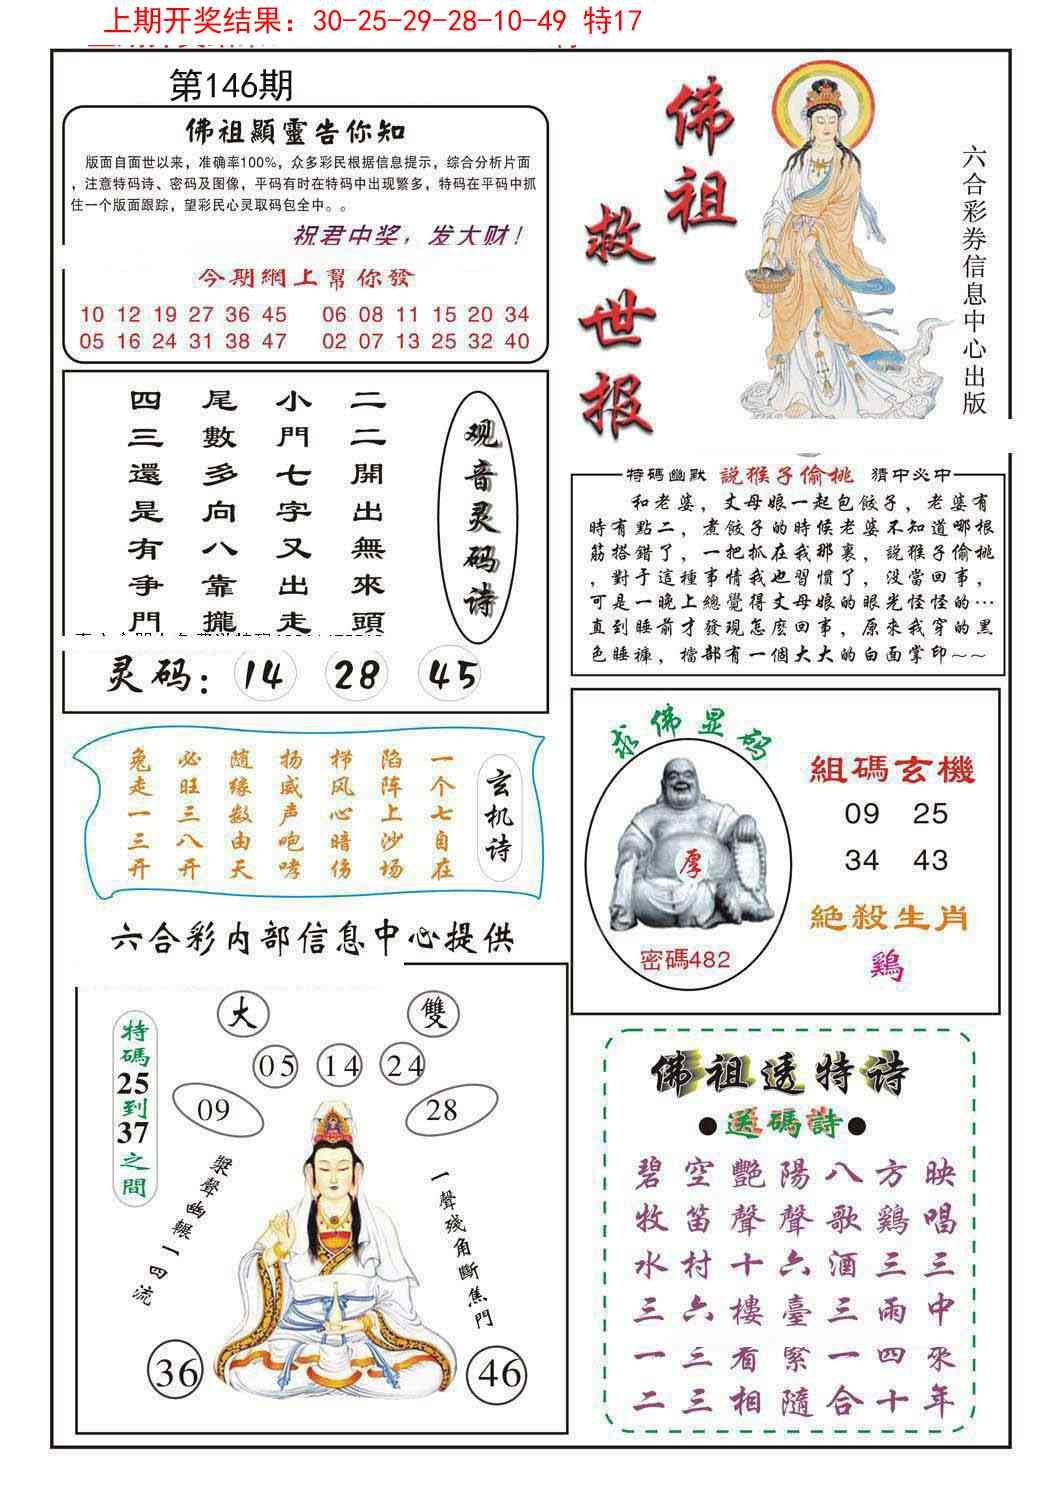 上期开奖结果：30-25-29-28-10-49 特17
第146期
佛祖顯靈告你知
版面自面世以来，准确率100%，众多彩民根据信息提示，综合分析片面
，注意特码诗、密码及图像，平码有时在特码中出现繁多，特码在平码中抓
住一个版面跟踪，望彩民心灵取码包全中。。
祝君中奖，发大财！
今期網上幫你發
10 12 19 27 36 45 06 08 11 15 20 34
05 16 24 31 38 47 02 07 13 25 32 40
佛祖
救世报
六合彩券信息中心出版
观音灵码诗
二二開出無來頭
小門七字又出走
尾數多向八靠攏
四三還是有争門
灵码：14 28 45
特碼幽默 説猴子偷桃 猜中必中
和老婆，丈母娘一起包餃子，老婆有
時有點二，煮餃子的時候老婆不知道哪根
筋搭錯了，一把抓在我那裏，説猴子偷桃
，對于這種事情我也習慣了，没當回事，
可是一晚上總覺得丈母娘的眼光怪怪的…
直到睡前才發現怎麽回事，原來我穿的黑
色睡褲，檔部有一個大大的白面掌印~~
玄机诗
一个七自在
陷阵上沙场
梯风心暗伤
扬威声咆哮
随缘数由天
必旺三八开
兔走一三开
求佛显码
厚
密碼482
組碼玄機
09 25
34 43
絶殺生肖
鷄
六合彩内部信息中心提供
大 雙
05 14 24
09 28
特碼25到37之間
槳聲幽輾一四流
一聲残角斷焦門
36 46
佛祖透特诗
●送碼詩●
碧空艷陽八方映
牧笛聲聲歌鷄唱
水村十六酒三三
三六樓臺三雨中
一三看緊一四來
二三相隨合十年